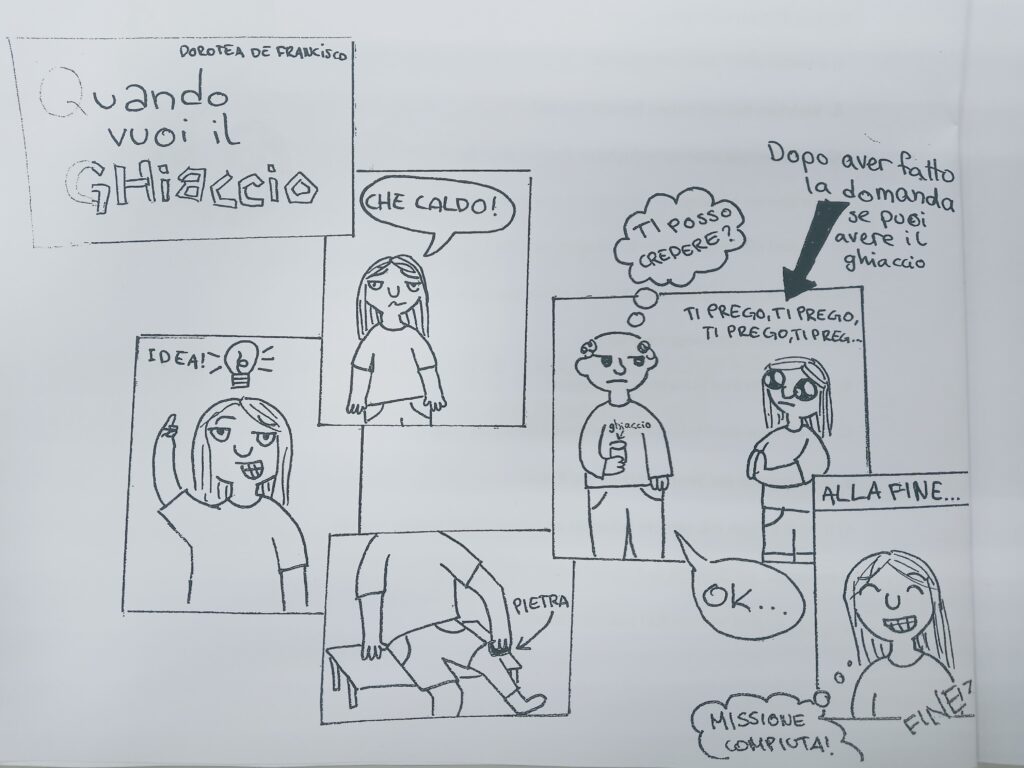 DOROTEA DE FRANCISCO
Quando
vuoi il
GHiaccio
CHE CALDO!
IDEA!
PIETRA
Dopo aver fatto
la domanda
se puoi
avere il
ghiaccio
TI POSSO
CREDERE?
TI PREGO, TI PREGO,
TI PREGO, TI PREG...
ghiaccio
OK...
ALLA FINE...
MISSIONE
COMPIUTA!
FINE!?